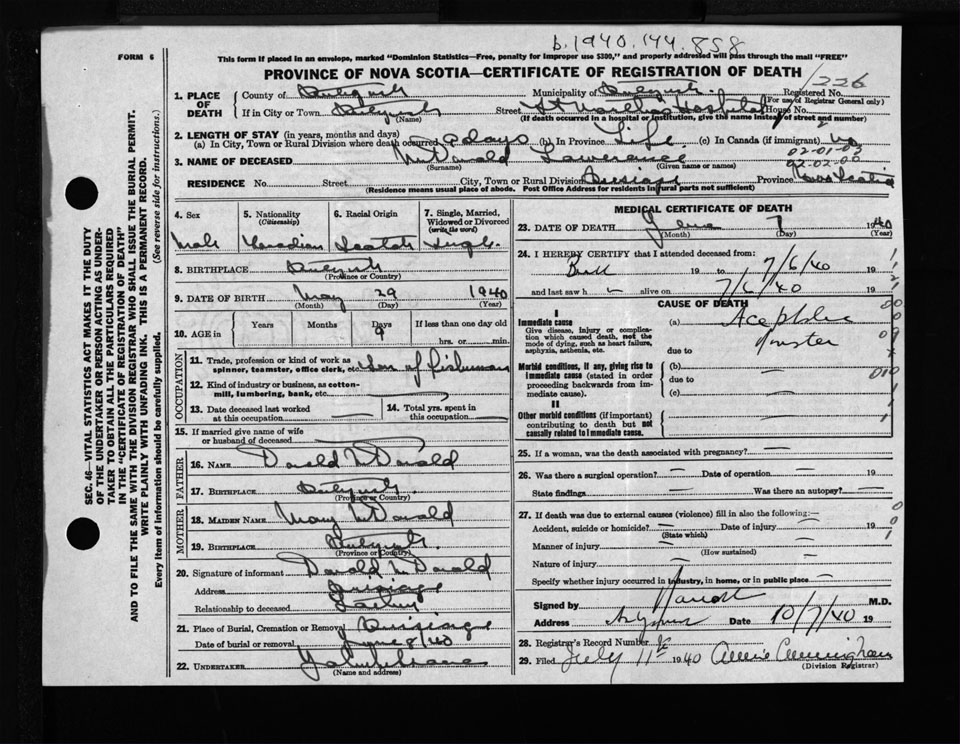 b.1940.144.858
FORM 6
This form if placed in an envelope, marked "Dominion Statistics—Free, penalty for improper use $300," and properly addressed will pass through the mail "FREE"
PROVINCE OF NOVA SCOTIA—CERTIFICATE OF REGISTRATION OF DEATH
1226
1. PLACE OF DEATH
County of
Municipality of
Registered No.
(For use of Registrar General only)
If in City or Town
(Name)
Street St Marthas Hospital House No.
(If death occurred in a hospital or institution, give the name instead of street and number)
2. LENGTH OF STAY (in years, months and days)
(a) In City, Town or Rural Division where death occurred 9 days (b) In Province Life (c) In Canada (if immigrant)
02-01-03
3. NAME OF DECEASED McDonald Lawerence
(Surname) (Given name or names)
02-02-00
RESIDENCE No. Street City, Town or Rural Division Province Nova Scotia
(Residence means usual place of abode. Post Office Address for residents in rural parts not sufficient)
4. Sex
Male
5. Nationality (Citizenship)
Canadian
6. Racial Origin
Scotch
7. Single, Married, Widowed or Divorced (write the word)
Single
8. BIRTHPLACE
(Province or Country)
9. DATE OF BIRTH May 29 1940
(Month) (Day) (Year)
10. AGE in Years Months Days If less than one day old
9 hrs. or min.
OCCUPATION
11. Trade, profession or kind of work as spinner, teamster, office clerk, etc. Son of fisherman
12. Kind of industry or business, as cotton-mill, lumbering, bank, etc.
13. Date deceased last worked at this occupation
14. Total yrs. spent in this occupation
15. If married give name of wife or husband of deceased
FATHER
16. NAME Donald McDonald
17. BIRTHPLACE
(Province or Country)
MOTHER
18. MAIDEN NAME Mary McDonald
19. BIRTHPLACE
(Province or Country)
20. Signature of informant Donald McDonald
Address
Relationship to deceased Father
21. Place of Burial, Cremation or Removal
Date of burial or removal June 8/40
22. UNDERTAKER
(Name and address)
MEDICAL CERTIFICATE OF DEATH
23. DATE OF DEATH June 7 1940
(Month) (Day) (Year)
24. I HEREBY CERTIFY that I attended deceased from:
19 to 7/6/40 19
and last saw h alive on 7/6/40 19
CAUSE OF DEATH
I
Immediate cause
Give disease, injury or complication which caused death, not the mode of dying, such as heart failure, asphyxia, asthenia, etc.
(a)
due to
Morbid conditions, if any, giving rise to immediate cause (stated in order proceeding backwards from immediate cause).
(b)
due to
(c)
II
Other morbid conditions (if important) contributing to death but not causally related to immediate cause.
25. If a woman, was the death associated with pregnancy? —
26. Was there a surgical operation? — Date of operation — 19
State findings Was there an autopsy? —
27. If death was due to external causes (violence) fill in also the following:—
Accident, suicide or homicide? — Date of injury — 19
(State which)
Manner of injury —
(How sustained)
Nature of injury —
Specify whether injury occurred in industry, in home, or in public place —
Signed by M.D.
Address Date 10/7/40 19
28. Registrar's Record Number
29. Filed July 11th 1940 Annie Cunningham
(Division Registrar)
SEC. 46—VITAL STATISTICS ACT MAKES IT THE DUTY
OF THE UNDERTAKER OR PERSON ACTING AS UNDER-
TAKER TO OBTAIN ALL THE PARTICULARS REQUIRED
IN THE "CERTIFICATE OF REGISTRATION OF DEATH"
AND TO FILE THE SAME WITH THE DIVISION REGISTRAR WHO SHALL ISSUE THE BURIAL PERMIT.
WRITE PLAINLY WITH UNFADING INK. THIS IS A PERMANENT RECORD.
Every item of information should be carefully supplied. (See reverse side for instructions.)